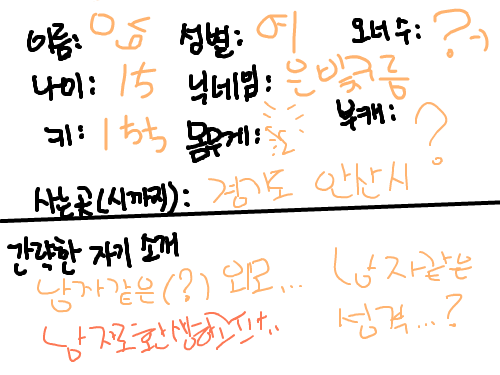 이름: 성별: 여 오너 수: ?
나이: 15 닉네임: 은빛구름
키: 155 몸무게: 부캐: ?
사는곳(시까지): 경기도 안산시
간략한 자기 소개
남자같은(?) 외모... 남자같은
성격...?
남자로환생하고싶다..